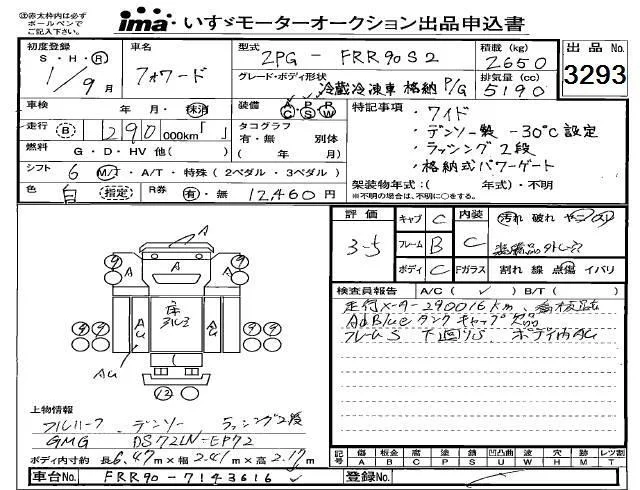 ㊟赤太枠内は必ず
ボールペンで
ご記入下さい。
ima いすゞモーターオークション出品申込書
初度登録
S・H・R
1/9月
車名
フォワード
型式
2PG-FRR90S2
グレード・ボディ形状
冷蔵冷凍車 格納 P/G
積載(kg)
2650
排気量(cc)
5190
出品No.
3293
車検
年 月・抹消
走行 B 1 290 000km「 」
燃料 G・D・HV 他( )
シフト 6 M/T・A/T・特殊(2ペダル・3ペダル)
色 白 指定 R券 有・無 12,460円
装備 A/C P/S P/W
タコグラフ
有・無 別体
( 年 月)
特記事項・ワイド
・デンソー製 -30℃設定
・ラッシング2段
・格納式パワーゲート
架装物年式:( 年式)・不明
※不明の場合は、不明に○をする。
評価
3-5
キャブ C
フレーム B
ボディ C
内装
C
Fガラス
汚れ 破れ ヤニ
割れ 線 点傷 イバリ
検査員報告 A/C( ✓ ) B/T( )
走行メーター290016km、
AdBlueタンクキャップ欠品
フレームS 下回りS、ボディ内AU
A
A
A A
庫
アルミ
AU AU
AU
12
上物情報
フルハーフ デンソー ラッシング2段
GMG DS72LN-EP72
ボディ内寸約 長6.47m×幅2.41m×高2.17m
記号 傷 板金 腐 塗 錆 凹凸曲 波 穴 跡 レツ割
A B C P S U W H M T
車台No. FRR90-7143616
登録No.